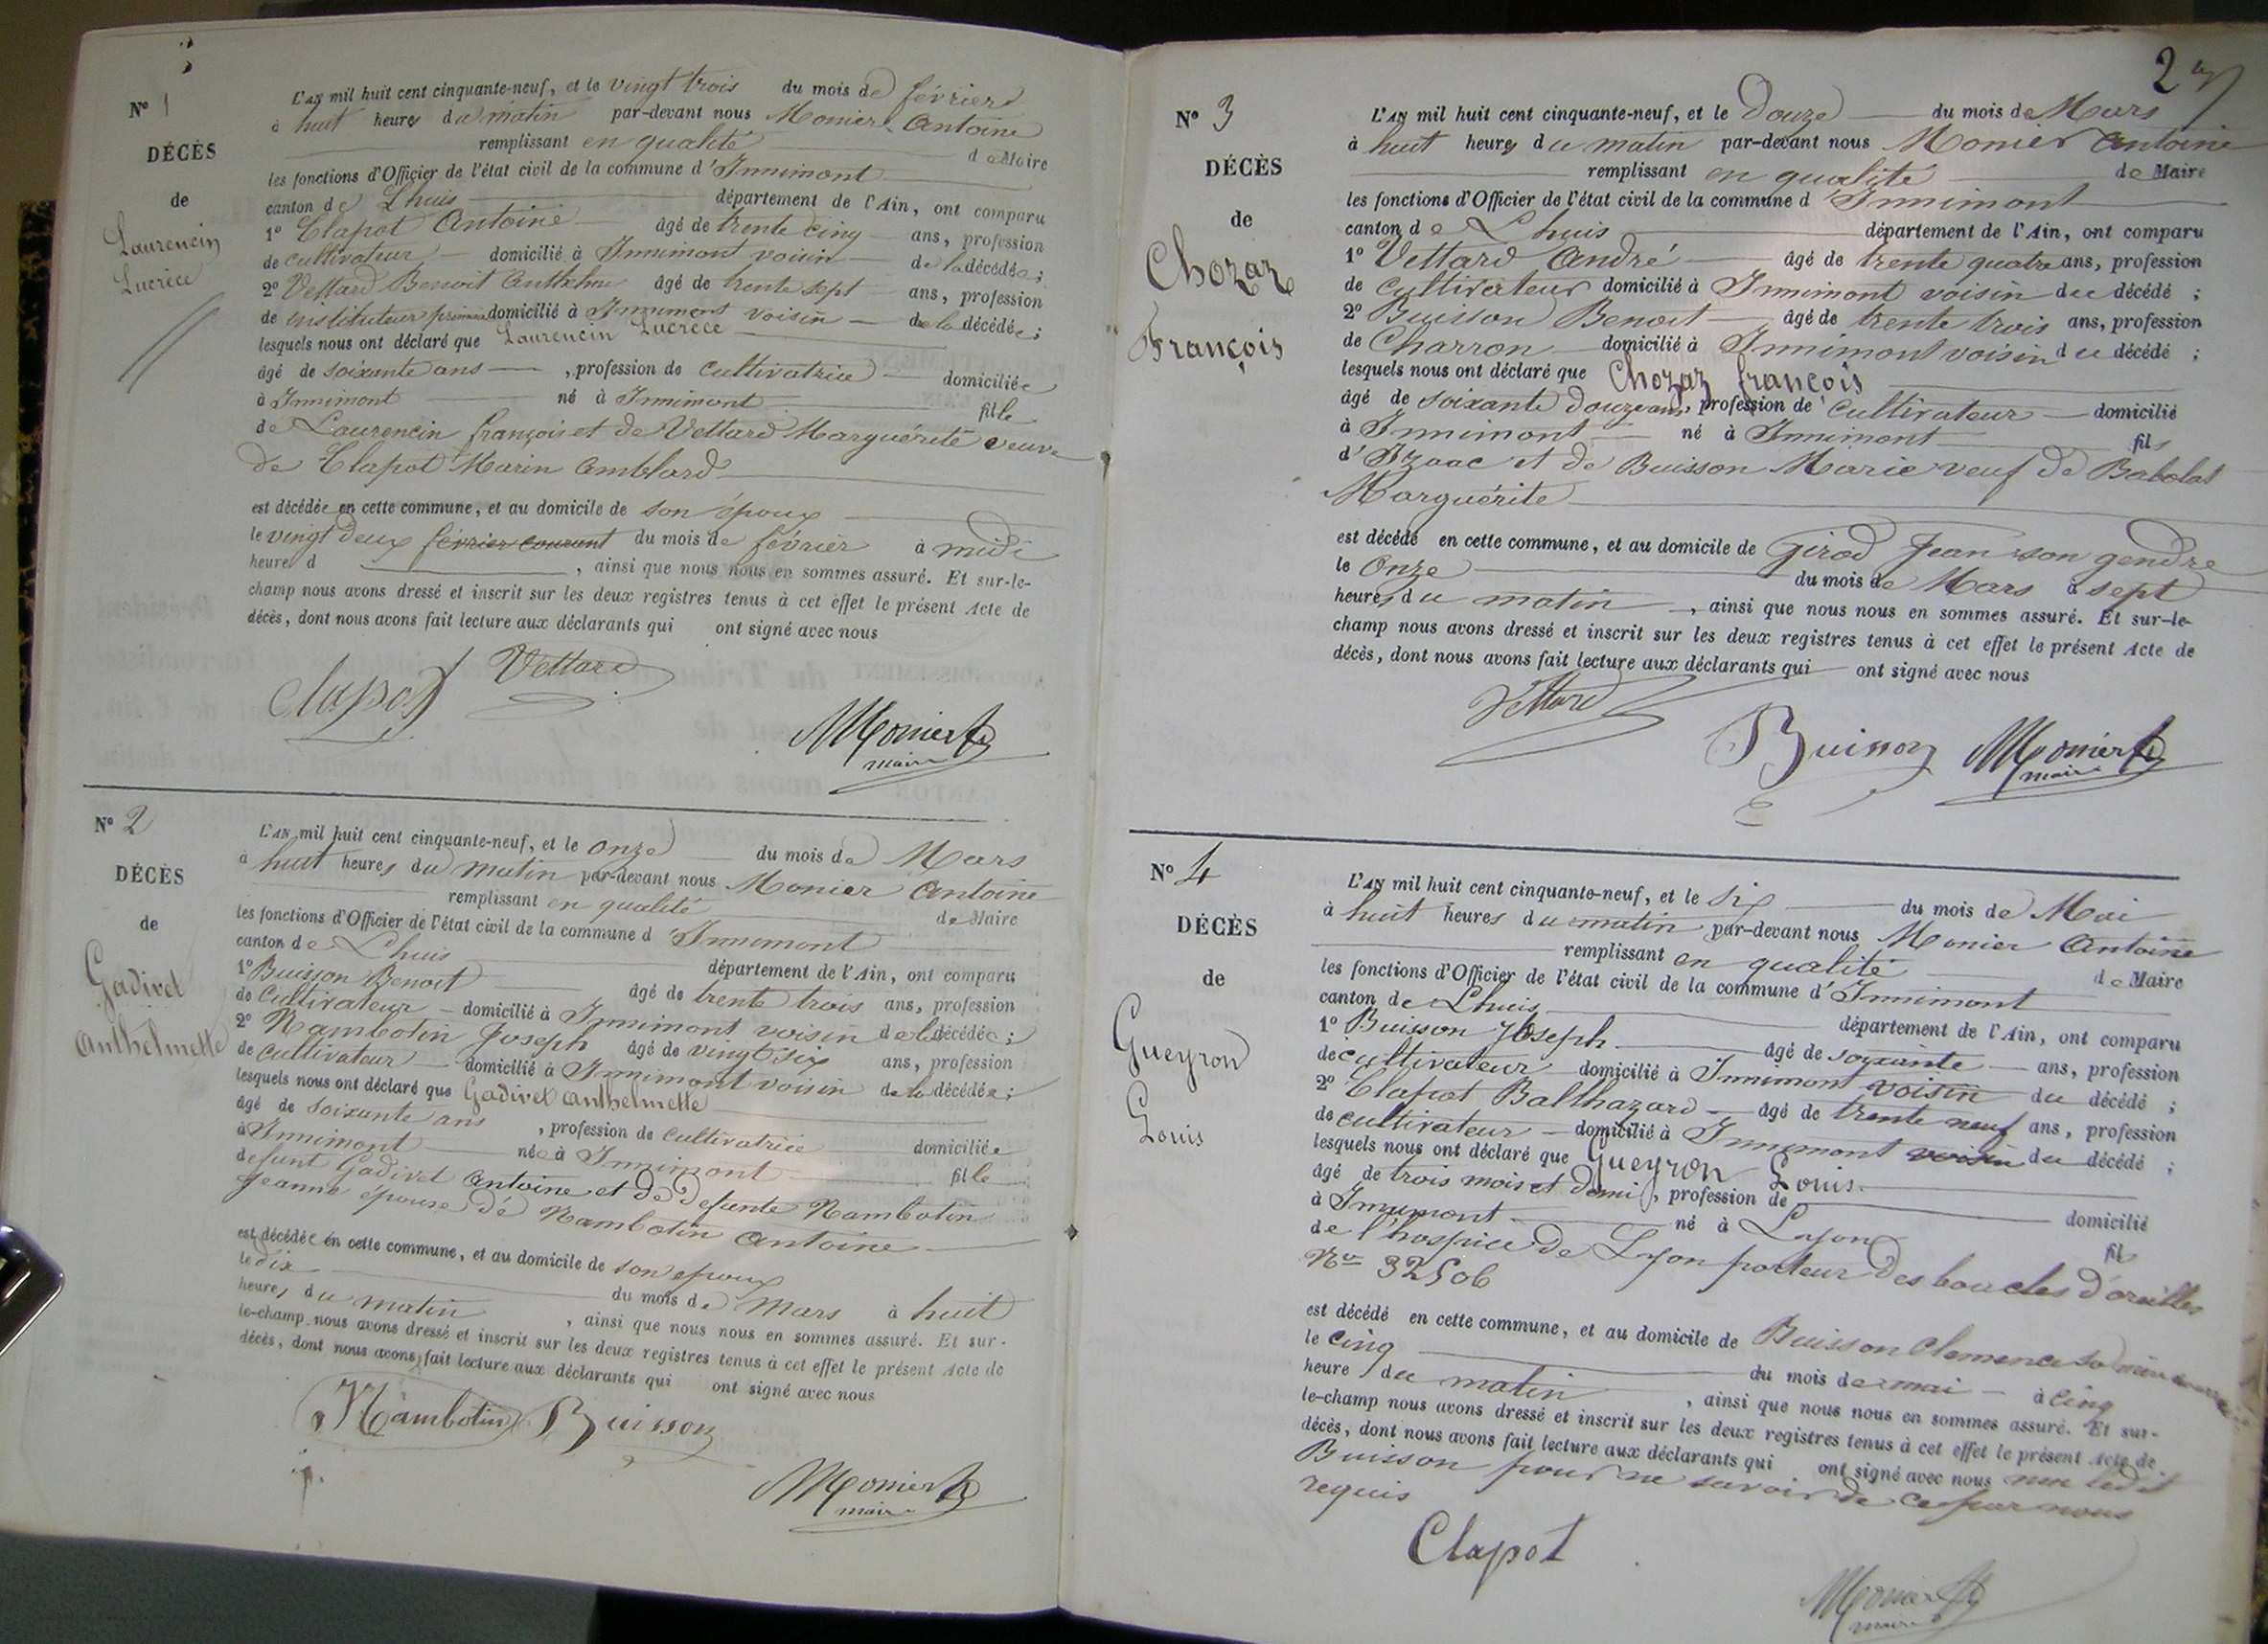 N° 1
DÉCÈS
de
Laurencin
Lucrèce
L'AN mil huit cent cinquante-neuf, et le vingt trois du mois de février
à huit heures du matin par-devant nous Monier Antoine
remplissant en qualité de Maire
les fonctions d'Officier de l'état civil de la commune d'Innimont
canton de Lhuis département de l'Ain, ont comparu
1° Clapot Antoine âgé de trente cinq ans, profession
de cultivateur domicilié à Innimont voisin de la décédée ;
2° Vettard Benoit Anthelme âgé de trente sept ans, profession
de instituteur primaire domicilié à Innimont voisin de la décédée ;
lesquels nous ont déclaré que Laurencin Lucrèce
âgé de soixante ans, profession de cultivatrice domiciliée
à Innimont né à Innimont fille
de Laurencin françois et de Vettard Marguérite veuve
de Clapot Marin Amblard
est décédée en cette commune, et au domicile de son époux
le vingt deux février courant du mois de février à midi
heure d , ainsi que nous nous en sommes assuré. Et sur-le-
champ nous avons dressé et inscrit sur les deux registres tenus à cet effet le présent Acte de
décès, dont nous avons fait lecture aux déclarants qui ont signé avec nous
Clapot Vettard
Monier
maire
N° 2
DÉCÈS
de
Gadivet
Anthelmette
L'AN mil huit cent cinquante-neuf, et le onze du mois de Mars
à huit heures du matin par-devant nous Monier Antoine
remplissant en qualité de Maire
les fonctions d'Officier de l'état civil de la commune d'Innimont
canton de Lhuis département de l'Ain, ont comparu
1° Buisson Benoit âgé de trente trois ans, profession
de cultivateur domicilié à Innimont voisin de la décédée ;
2° Nambotin Joseph âgé de vingt six ans, profession
de cultivateur domicilié à Innimont voisin de la décédée ;
lesquels nous ont déclaré que Gadivet Anthelmette
âgé de soixante ans, profession de cultivatrice domiciliée
à Innimont née à Innimont fille
defunt Gadivet Antoine et de Defunte Nambotin
Jeanne épouse de Nambotin Antoine
est décédée en cette commune, et au domicile de son epoux
le dix du mois de Mars à huit
heures du matin, ainsi que nous nous en sommes assuré. Et sur-
le-champ nous avons dressé et inscrit sur les deux registres tenus à cet effet le présent Acte de
décès, dont nous avons fait lecture aux déclarants qui ont signé avec nous
Nambotin Buisson
Monier
maire
2
N° 3
DÉCÈS
de
Chozaz
François
L'AN mil huit cent cinquante-neuf, et le Douze du mois de Mars
à huit heures du matin par-devant nous Monier Antoine
remplissant en qualité de Maire
les fonctions d'Officier de l'état civil de la commune d'Innimont
canton de Lhuis département de l'Ain, ont comparu
1° Vettard André âgé de trente quatre ans, profession
de cultivateur domicilié à Innimont voisin du décédé ;
2° Buisson Benoit âgé de trente trois ans, profession
de Charron domicilié à Innimont voisin du décédé ;
lesquels nous ont déclaré que Chozaz françois
âgé de soixante douze ans, profession de cultivateur domicilié
à Innimont né à Innimont fils
d'Izaac et de Buisson Marie veuf de Babolat
Marguérite
est décédé en cette commune, et au domicile de Girod Jean son gendre
le Onze du mois de Mars à sept
heures du matin, ainsi que nous nous en sommes assuré. Et sur-le-
champ nous avons dressé et inscrit sur les deux registres tenus à cet effet le présent Acte de
décès, dont nous avons fait lecture aux déclarants qui ont signé avec nous
Vettard
Buisson Monier
maire
N° 4
DÉCÈS
de
Gueyron
Louis
L'AN mil huit cent cinquante-neuf, et le six du mois de Mai
à huit heures du matin par-devant nous Monier Antoine
remplissant en qualité de Maire
les fonctions d'Officier de l'état civil de la commune d'Innimont
canton de Lhuis département de l'Ain, ont comparu
1° Buisson Joseph âgé de soixante ans, profession
de cultivateur domicilié à Innimont voisin du décédé ;
2° Clapot Balthazard âgé de trente neuf ans, profession
de cultivateur domicilié à Innimont voisin du décédé ;
lesquels nous ont déclaré que Gueyron Louis
âgé de trois mois et demi, profession de domicilié
à Innimont né à Lyon fil
de l'hospice de Lyon porteur des boucles d'oreilles
No 32506
est décédé en cette commune, et au domicile de Buisson Clemence sa
le cinq du mois de mai à cinq
heure du matin, ainsi que nous nous en sommes assuré. Et sur-
le-champ nous avons dressé et inscrit sur les deux registres tenus à cet effet le présent Acte de
décès, dont nous avons fait lecture aux déclarants qui ont signé avec nous non ledit
Buisson pour ne savoir de ce par nous
requis
Clapot
Monier
maire